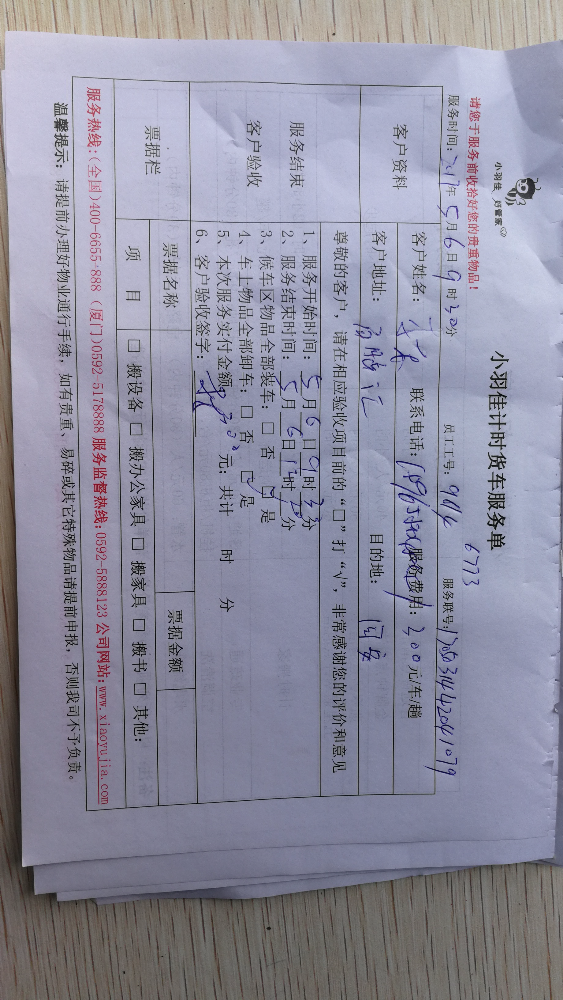 小羽佳 好管家
小羽佳计时货车服务单
6773
请您于服务前收拾好您的贵重物品！
服务时间：2017年5月6日9时30分 员工工号：9114 服务联号：
客户资料
客户姓名： 联系电话： 服务费用：300元/车/趟
客户地址： 目的地：同安
尊敬的客户，请在相应验收项目前的“□”打“√”，非常感谢您的评价和意见
服务结束
客户验收
1、服务开始时间：5月6日9时33分
2、服务结束时间：5月6日 时 分
3、候车区物品全部装车：□ 否 □ 是
4、车上物品全部卸车：□ 否 □ 是
5、本次服务实付金额：300元；共计 时 分
6、客户验收签字：
票据栏
票据名称 票据金额
项 目 □ 搬设备 □ 搬办公家具 □ 搬家具 □ 搬书 □ 其他：
服务热线：(全国)400-6655-888 (厦门)0592-5178888 服务监督热线：0592-5888123 公司网站：www.xiaoyujia.com
温馨提示：请提前办理好物业通行手续，如有贵重、易碎或其它特殊物品请提前申报，否则我司不予负责。